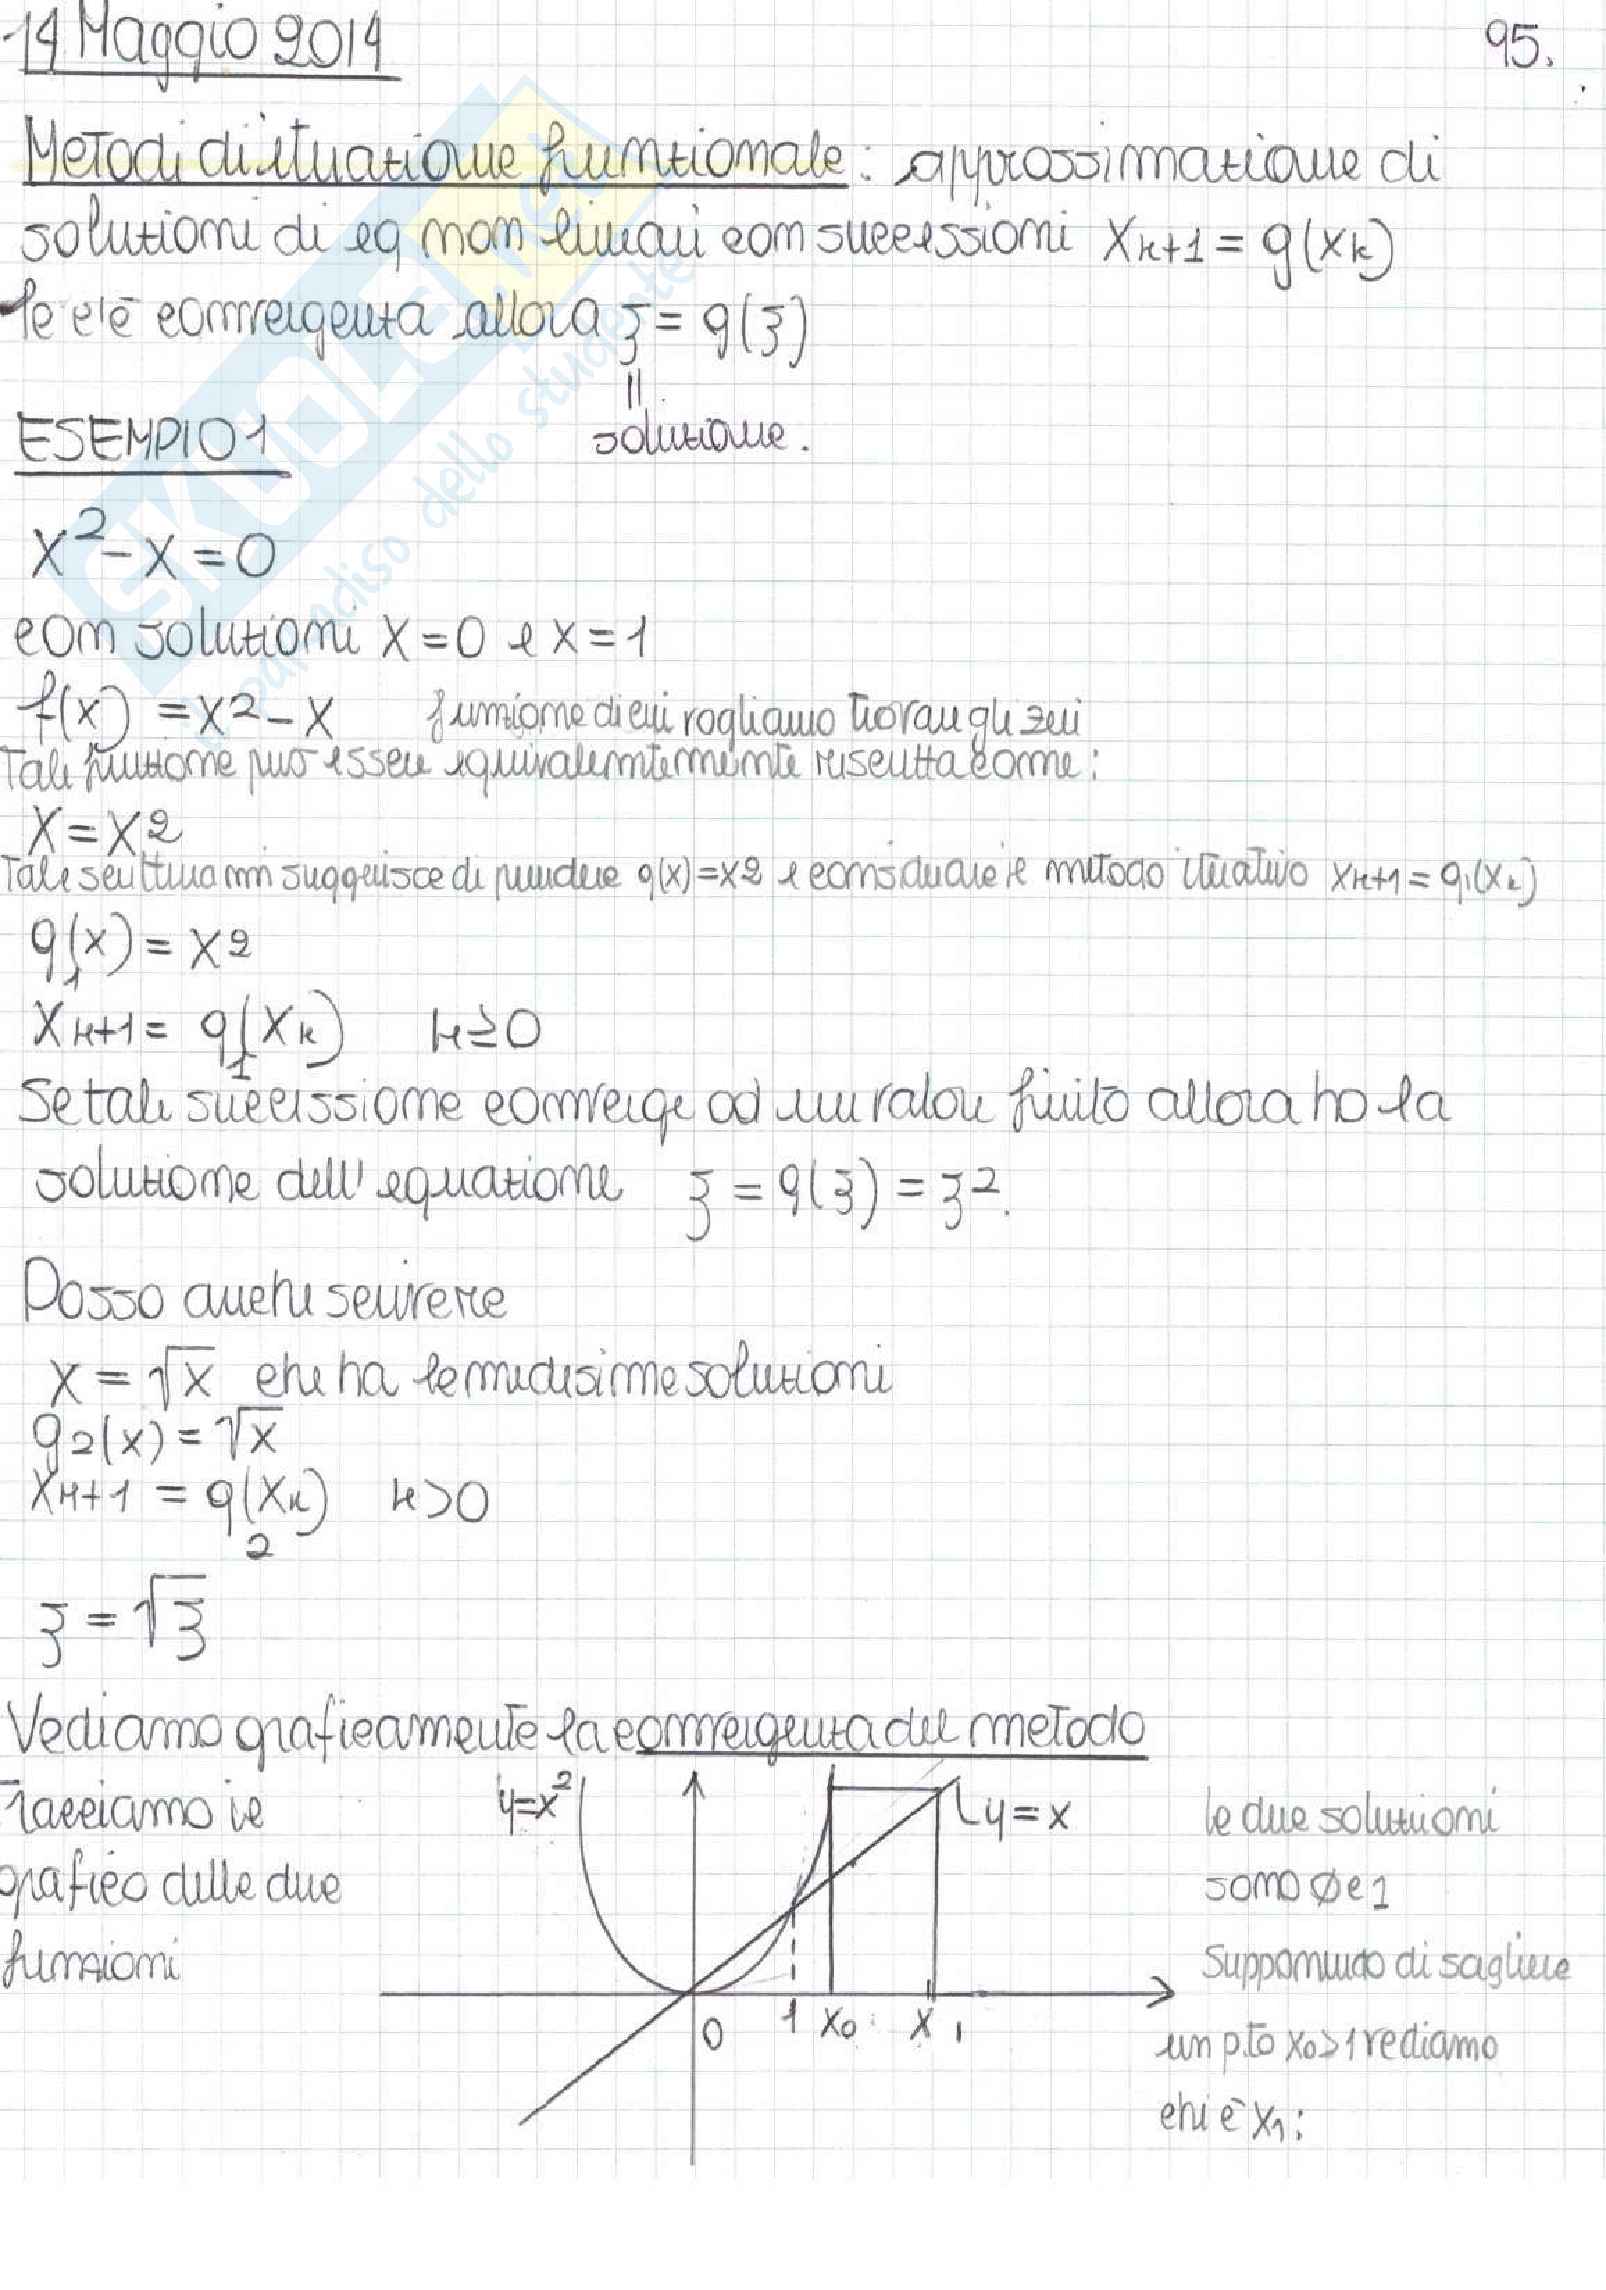 14 Maggio 2014
95.
Metodi di iterazione funzionale: approssimazione di
soluzioni di eq non lineari con successioni xk+1 = g(xk)
se c'è convergenza allora ξ = g(ξ)
||
soluzione.
ESEMPIO 1
x² - x = 0
con soluzioni x = 0 e x = 1
f(x) = x² - x funzione di cui vogliamo trovare gli zeri
Tale funzione può essere equivalentemente riscritta come:
x = x²
Tale scrittura mi suggerisce di prendere g(x) = x² e considerare il metodo iterativo xk+1 = g1(xk)
g1(x) = x²
xk+1 = g1(xk) k ≥ 0
Se tale successione converge ad un valore finito allora ho la
soluzione dell'equazione ξ = g(ξ) = ξ².
Posso anche scrivere
x = √x che ha le medesime soluzioni
g2(x) = √x
xk+1 = g2(xk) k > 0
ξ = √ξ
Vediamo graficamente la convergenza del metodo
Tracciamo il
grafico delle due
funzioni
y = x²
y = x
0 1 x0 x1
le due soluzioni
sono Ø e 1
Supponendo di scegliere
un p.to x0 > 1 vediamo
chi è x1:
SKUOLA.net
il paradiso dello studente